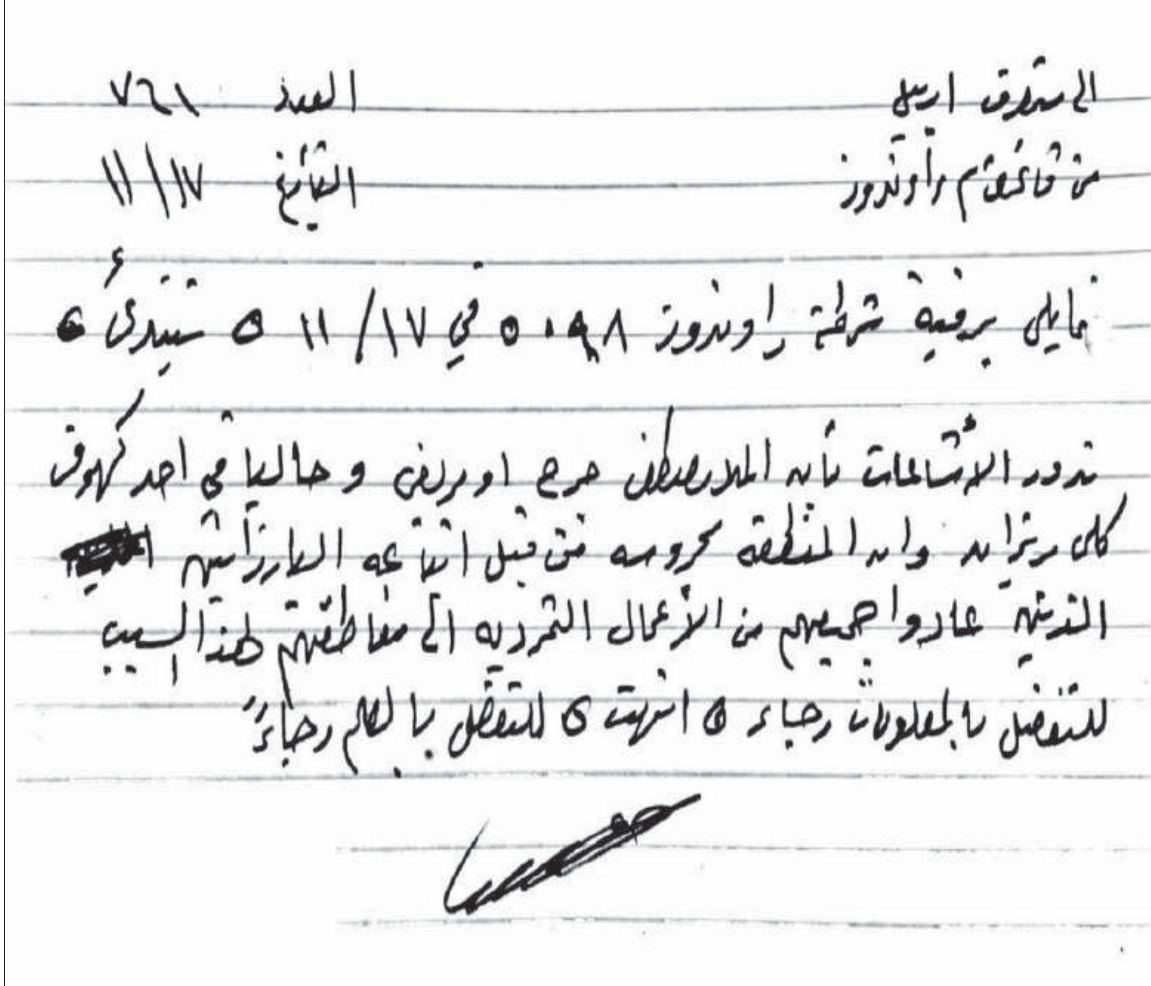 الى متصرف اربيل العدد ٧٦١
من قائمقام راوندوز التاريخ ١١/١٧
فيما يلي برقية شرطة راوندوز ٥٠٩٨ في ١١/١٧ ٥ تبتدئ ٥
تدور الاشاعات بأن الملا مصطفى جرح او مرض و حاليا في احد كهوف
كلي وان المنطقة محروسه من قبل اتباعه البارزانين
الذين عادوا جميعهم من الأعمال التمردية الى مناطقهم لهذا السبب
للتفضل بالمعلومات رجاء ٥ انتهت ٥ للتفضل بالعلم رجاءً